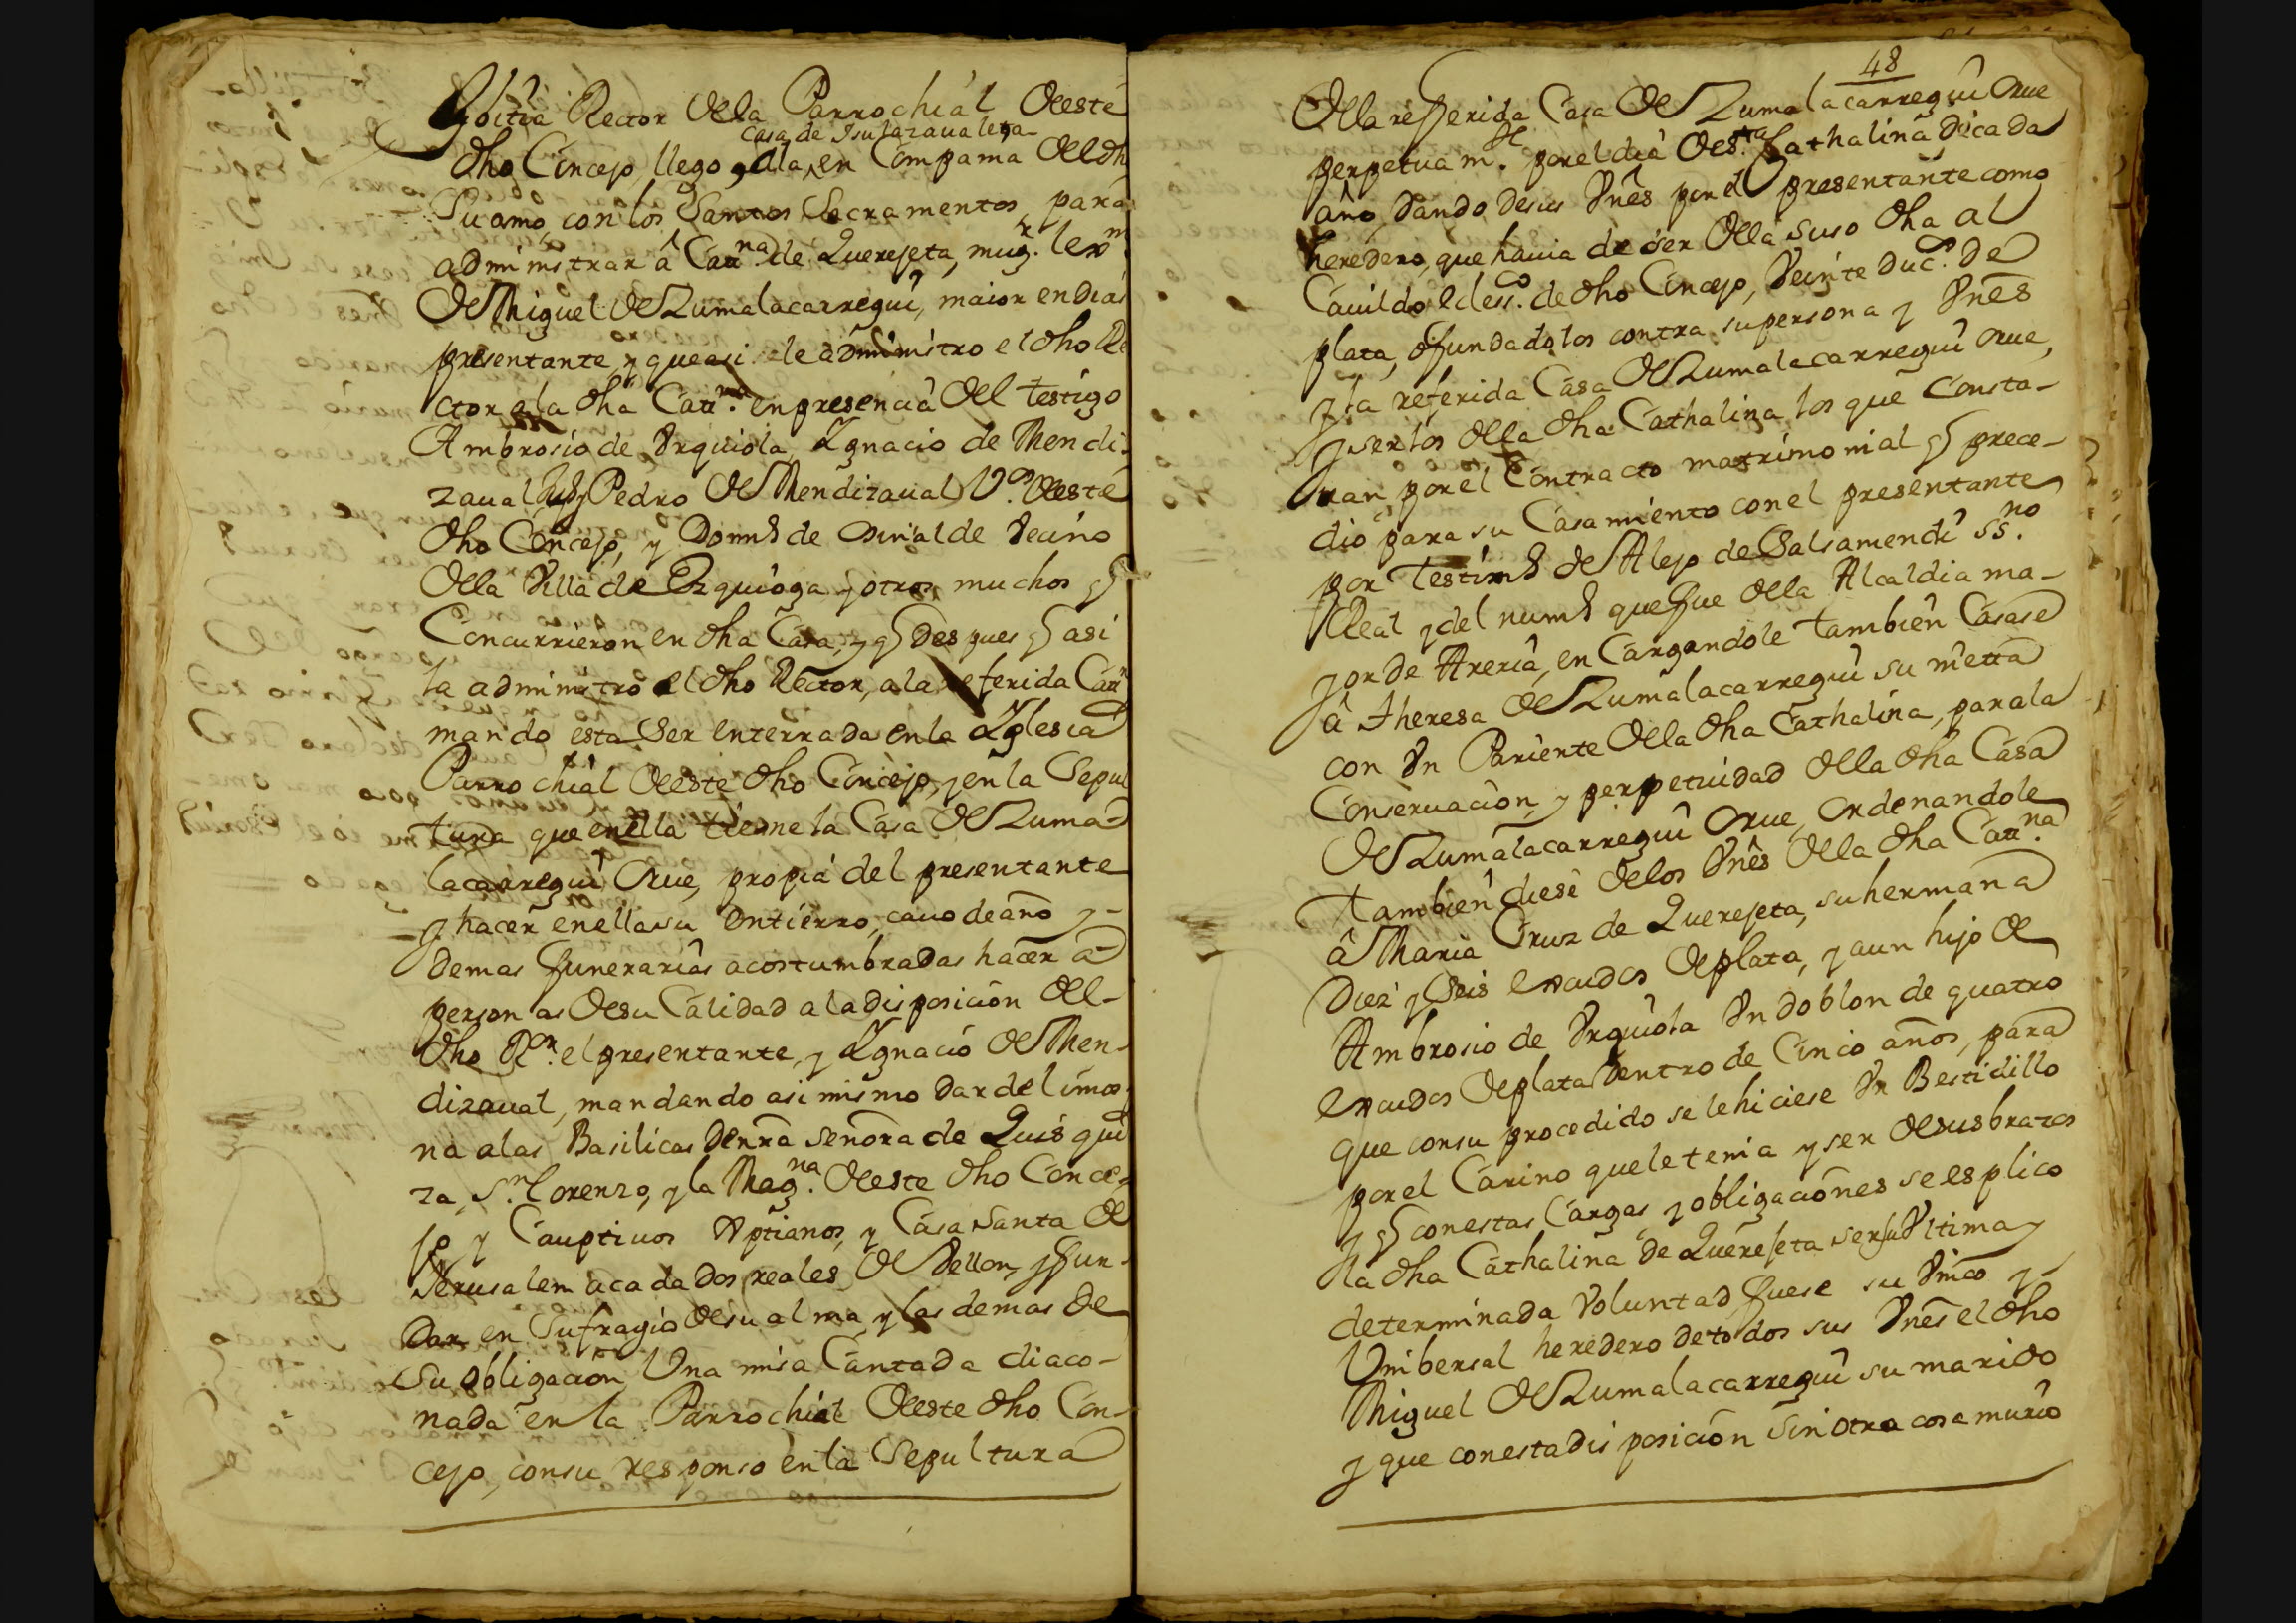 Goitia Rector della Parrochial deeste
casa de Isulazaualeta
dho Concejo, llego a la, en Compamia del dh
Su amo, con los Santos Sacramentos, para
administrar â Catt.na de Querejeta, mug.r lexm
de Miguel de Zumalacarregui, maior en dias
presentante, y que asi le administro el dho Re
ctor a la dha Catt.na en presencia del testigo
Ambrosio de Vrquiola, Ygnacio de Mendi-
zaual, y Pedro de Mendizaual V.os deeste
dho Concejo, y Dom.o de Oirialde Vecino
della Villa de Ezquioga y otros muchos q
Concurrieron en dha Casa, y q despues q asi
la administro el dho Rector, a la referida Catt
mando esta Ser enterrada en la Yglesia
Parrochial deeste dho Concejo, y en la Sepul
tura que en ella tiene la Casa de Zuma-
lacarregui Orue, propia del presentante
y hacer en ella su entierro, cauo de año y-
demas funerarias acostumbradas hacer a-
personas de su Calidad a la disposicion del-
dho R.or el presentante, y Ygnacio de Men-
dizaual, mandando asi mismo dar de limos-
na a las Basilicas de nra señora de Quisqui
za, S.n Lorenzo, y la Mag.na deeste dho Conce-
jo y Cauptiuos Xptianos, y Casa Santa de
Jerusalem a cada dos reales de Vellon, y fun-
dar en Sufragio de su alma, y las demas de
Su obligacion Una misa Cantada diaco-
nada en la Parrochial deeste dho Con-
cejo, con su responso en la Sepultura
48
della referida Casa de Zumalacarregui Orue
perpetuam.te por el dia de S.ta Cathalina de cada
año, dando de sus Vnes por el presentante como
heredero, que hauia de ser della suso dha al
Cauildo ecless.co de dho Concejo, Veinte duc.os de
plata, o fundadolos contra su persona y Vnes
y la referida Casa de Zumalacarregui Orue,
y ser los della dha Cathalina los que Consta-
ran por el Contracto matrimonial q prece-
dio para su Casamiento con el presentante
por testim.o de Alejo de Galsamendi ss.no
Real y del num.o que fue della Alcaldia ma-
yor de Areria, en Cargandole tambien Casase
â Theresa de Zumalacarregui su nietta
con Vn Pariente della dha Cathalina, para la
Conseruacion y perpetuidad della dha Casa
de Zumalacarregui Orue, Ordenandole
tambien diese delos Vnes della dha Catt.na
â Maria Cruz de Querejeta, su hermana
Diez y Seis escudos de plata, y a un hijo de
Ambrosio de Vrquiola Vn doblon de quatro
escudos de plata dentro de Cinco años, para
que con su procedido se le hiciese Vn Bestidillo
por el Carino que le tenia y ser de sus brazos
y q con estas Cargas y obligaciones se esplico
la dha Cathalina de Querejeta ser su Vltima y
determinada Voluntad fuese su Vnico y-
Unibersal heredero de todos sus Vnes el dho
Miguel de Zumalacarregui su marido
y que con esta disposicion Sin otra cosa murio